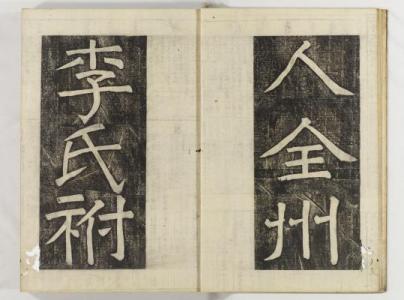 人全州
李氏祔